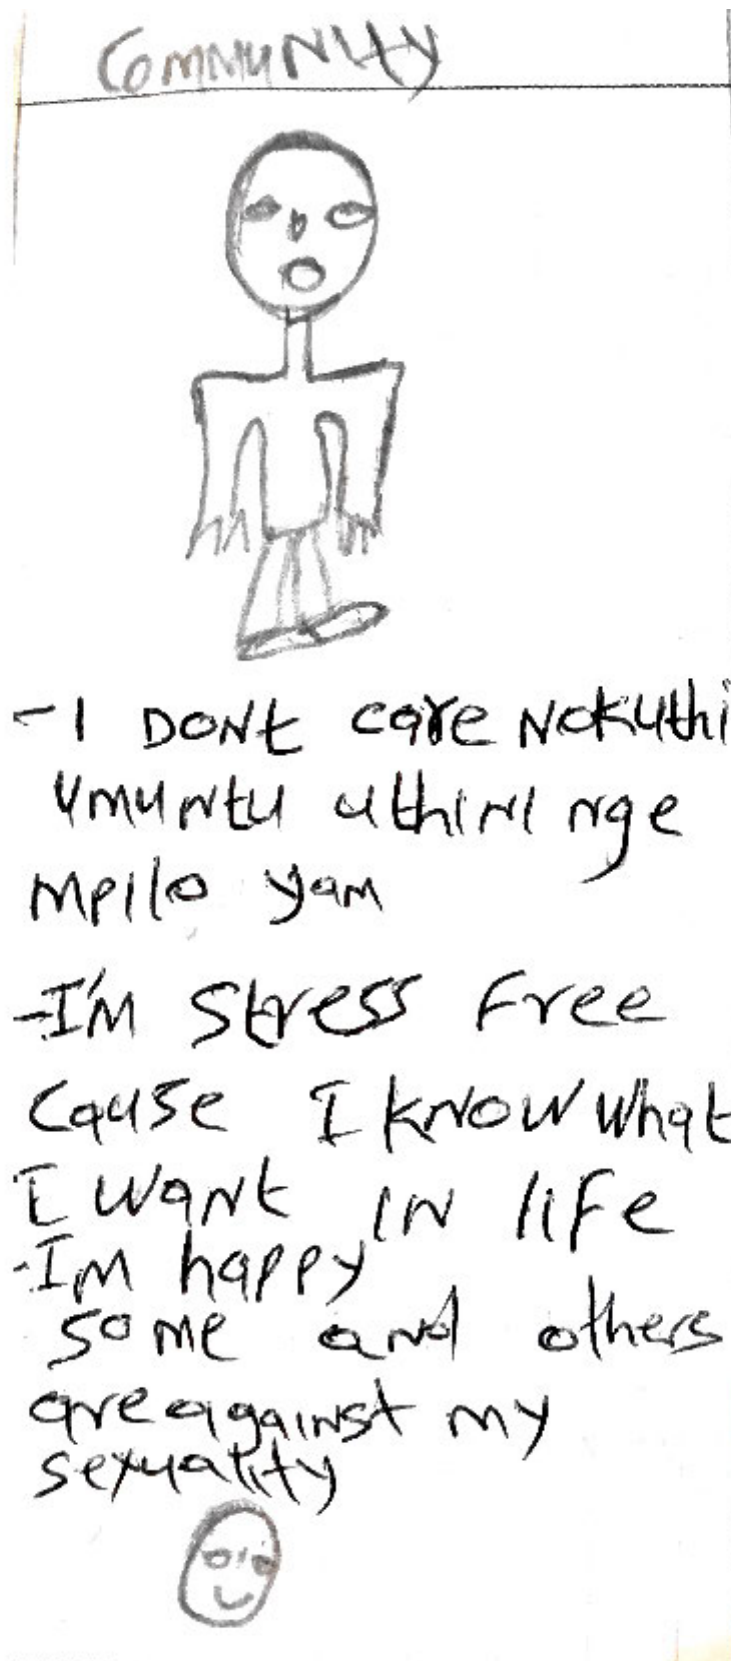 Community
- I DONt care NokUthi
UmuNtu uthiNi nge
Mpilo yam
- I'M Stress Free
Cause I kNow What
I WaNt IN life
- IM happy
some and others
are against my
sexuality